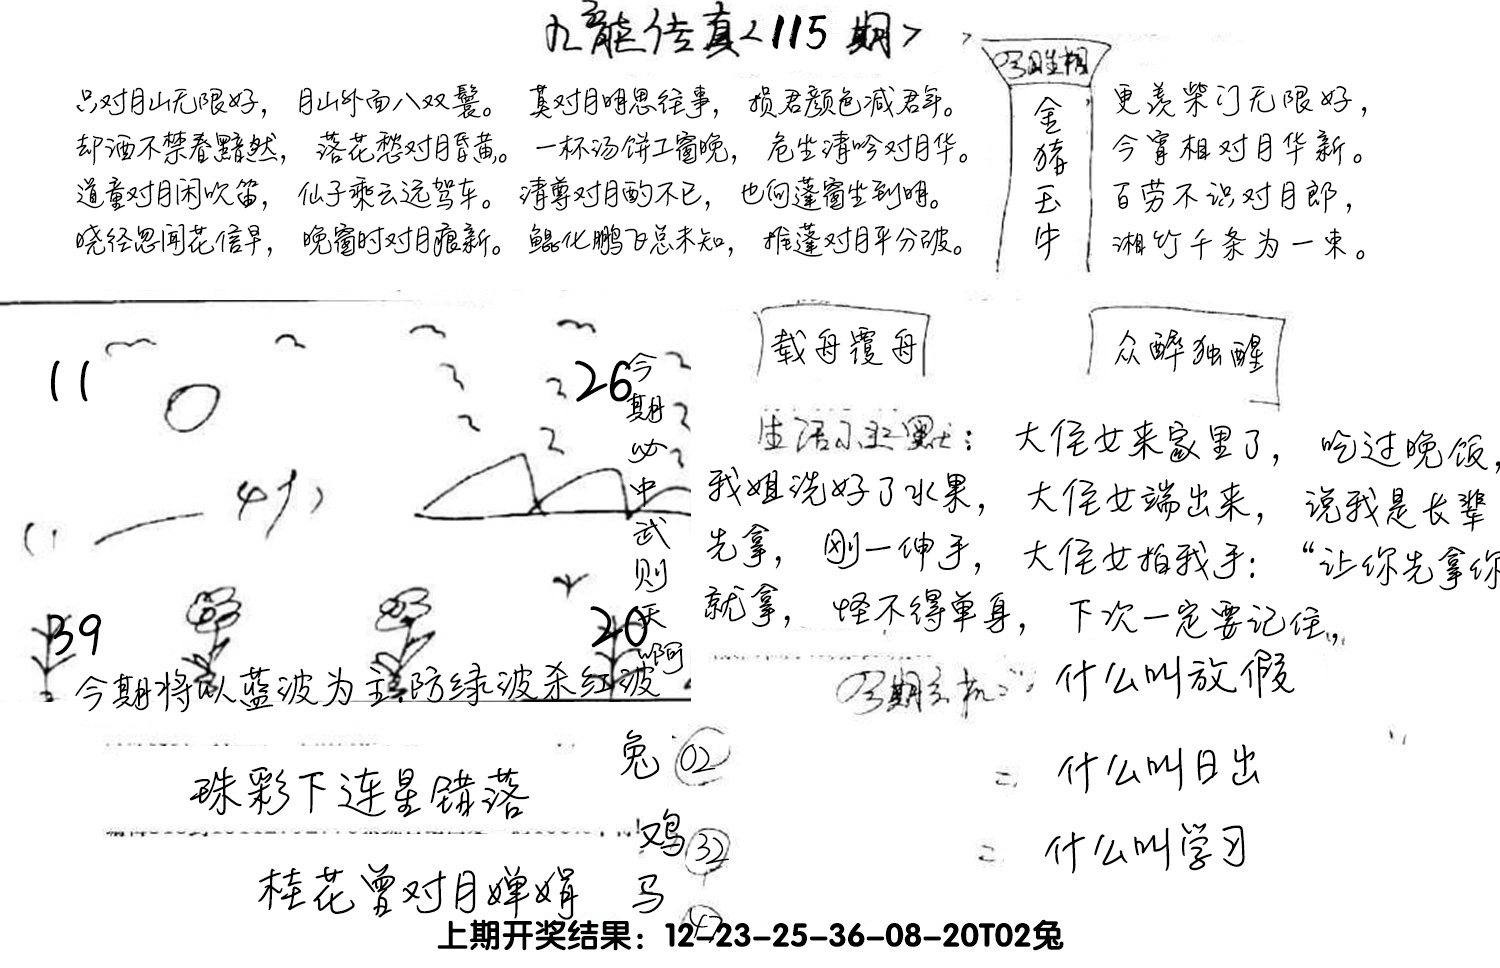 九龙传真<115期>
只对月山无限好，月山外面八双鬟。莫对月明思往事，损君颜色减君年。
却酒不禁春黯然，落花愁对月昏黄。一杯汤饼工窗晚，危坐清吟对月华。
道童对月闲吹笛，仙子乘云远驾车。清尊对月酌不已，也向蓬窗坐到明。
晓径忽闻花信早，晚窗时对月痕新。鲲化鹏飞总未知，推蓬对月平分破。
今期生相
金猪玉牛
更羡柴门无限好，
今宵相对月华新。
百劳不识对月郎，
湘竹千条为一束。
11
26
今期必中武则天啊
39
20
今期将以蓝波为主防绿波杀红波
载舟覆舟
众醉独醒
生活小幽默：大侄女来家里了，吃过晚饭，
我姐洗好了水果，大侄女端出来，说我是长辈
先拿，刚一伸手，大侄女拍我手：“让你先拿你
就拿，怪不得单身，下次一定要记住。
今期玄机：什么叫放假
=什么叫日出
=什么叫学习
珠彩下连星错落
桂花曾对月婵娟
兔 02
鸡 32
马
上期开奖结果：12-23-25-36-08-20T02兔